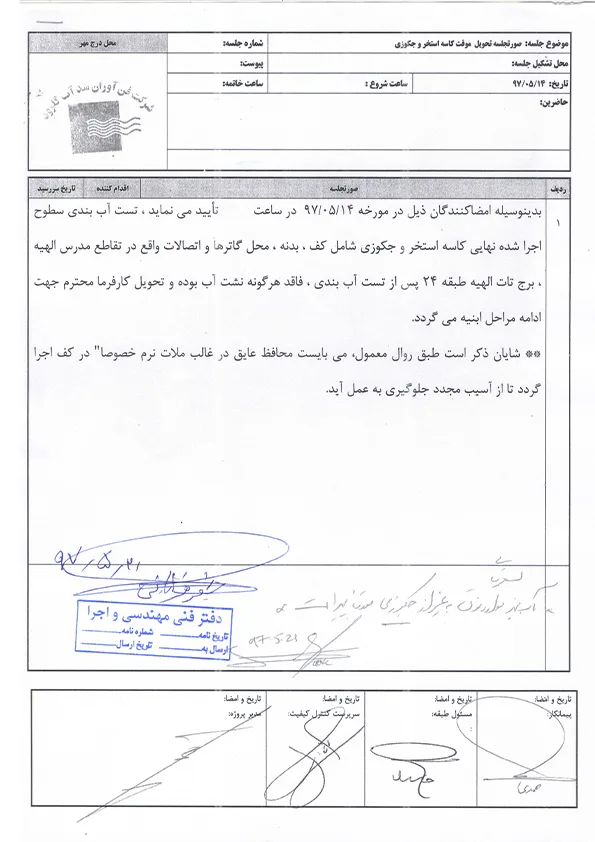 موضوع جلسه: صورتجلسه تحویل موقت کاسه استخر و جکوزی
شماره جلسه:
محل درج مهر
محل تشکیل جلسه:
پیوست:
تاریخ: ۹۷/۰۵/۱۴
ساعت شروع :
ساعت خاتمه:
حاضرین:
شرکت فن آوران سد آب
ردیف
صورتجلسه
اقدام کننده
تاریخ سررسید
۱
بدینوسیله امضاکنندگان ذیل در مورخه ۹۷/۰۵/۱۴ در ساعت تأیید می نماید ، تست آب بندی سطوح
اجرا شده نهایی کاسه استخر و جکوزی شامل کف ، بدنه ، محل گاترها و اتصالات واقع در تقاطع مدرس الهیه
، برج تات الهیه طبقه ۲۴ پس از تست آب بندی ، فاقد هرگونه نشت آب بوده و تحویل کارفرما محترم جهت
ادامه مراحل ابنیه می گردد.
** شایان ذکر است طبق روال معمول، می بایست محافظ عایق در غالب ملات نرم خصوصا" در کف اجرا
گردد تا از آسیب مجدد جلوگیری به عمل آید.
۹۷/۵/۲۱
دفتر فنی مهندسی و اجرا
تاریخ نامه
شماره نامه
ارسال به
تاریخ ارسال
۹۷-۵-۲۱
تاریخ و امضا:
پیمانکار:
تاریخ و امضا:
مسئول طبقه:
تاریخ و امضا:
سرپرست کنترل کیفیت:
تاریخ و امضا:
مدیر پروژه: